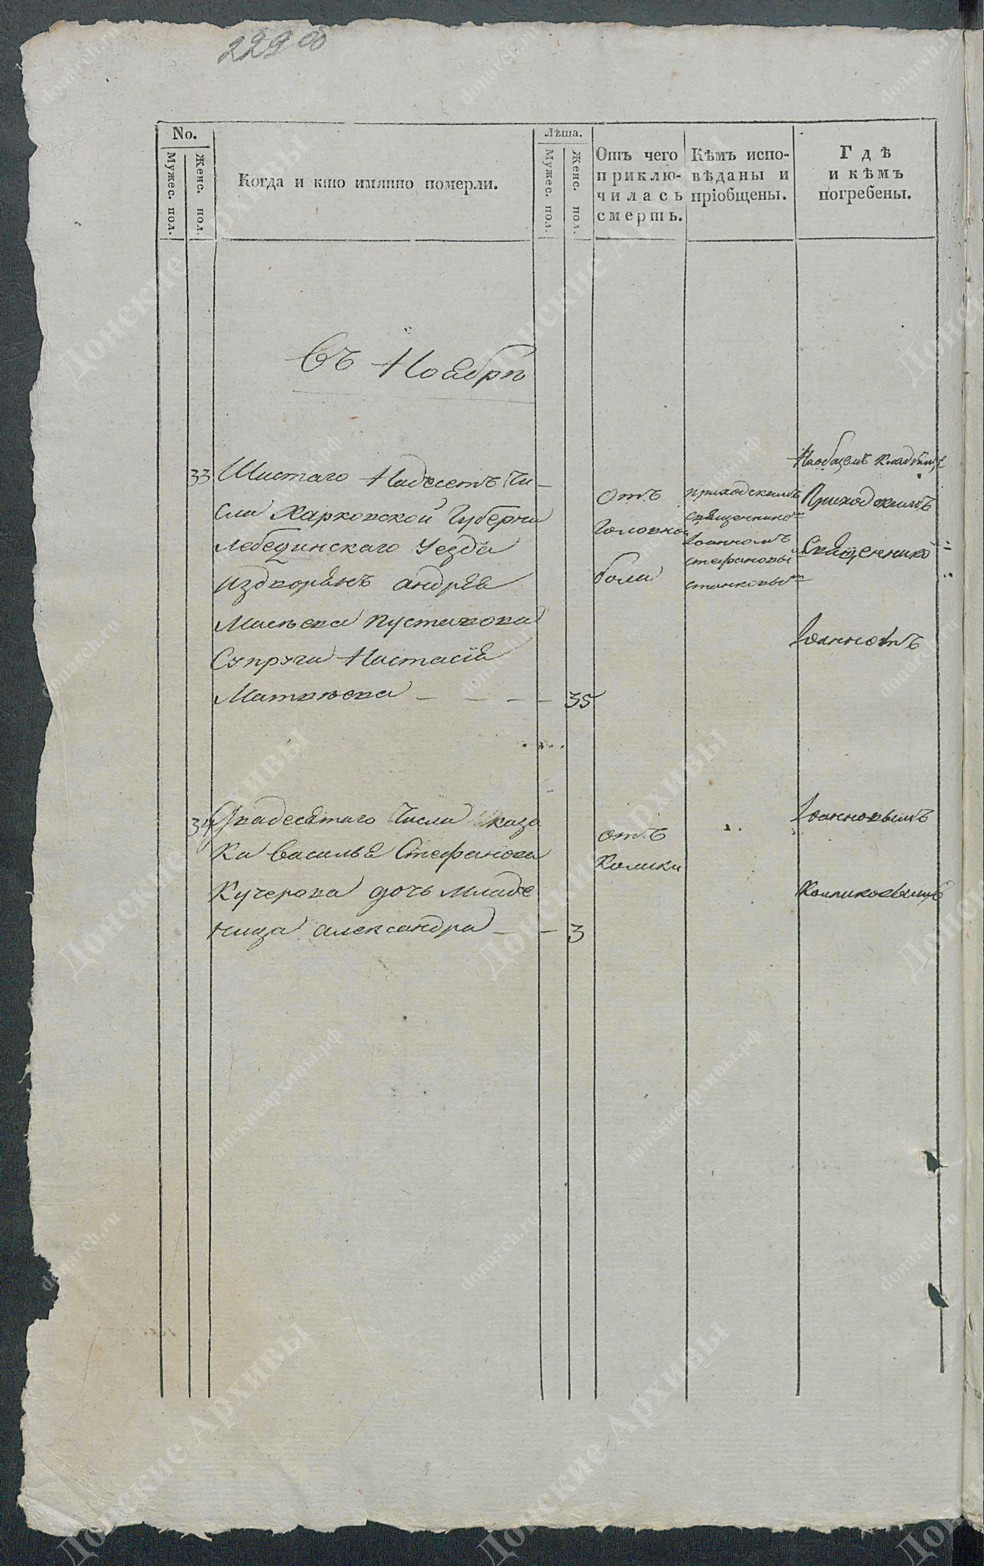 229 об
No.
Мужес. пол.
Женс. пол.
Когда и кто имянно померли.
Лѣта.
Мужес. пол.
Женс. пол.
Отъ чего
приклю-
чилась
смерть.
Кѣмъ испо-
вѣданы и
пріобщены.
Гдѣ
и кѣмъ
погребены.
въ Ноябрѣ
33
Шистаго Надесетъ Чи-
сла Харковской Губерни
Лебединскаго Уезда
андрѣя
Супруга Настасія
35
отъ
Головной
боли
приходскимъ
священико
Іоанномъ
стефановы
На общемъ кладбищ
Приходскимъ
Священико
Іоанномъ
34
Двадесятаго Числа каза
ка василья Стефанова
Кучерова дочь младе
ница александра
3
отъ
Колики
Іоанновымъ